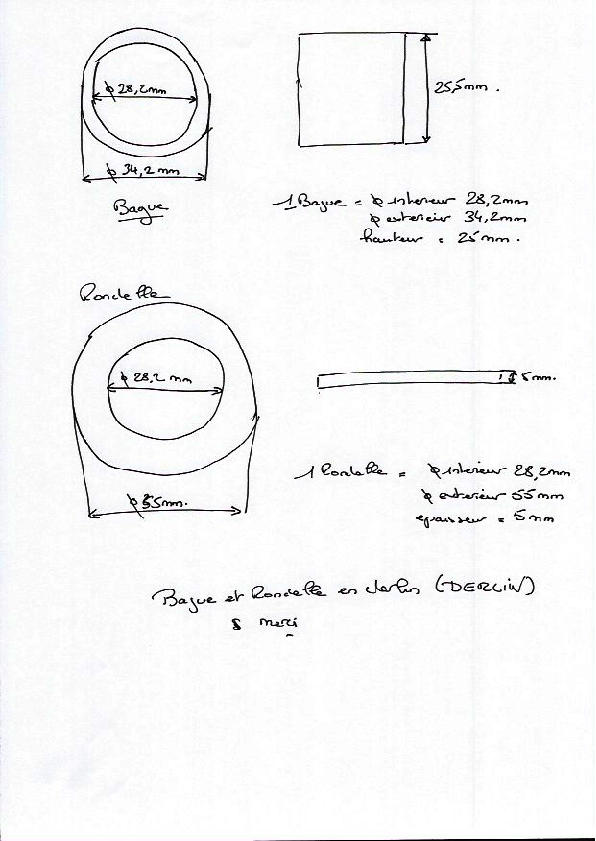 ϕ 28,2mm
25,5mm.
ϕ 34,2mm
Bague
1 Bague = ϕ interieur 28,2mm
ϕ exterieur 34,2mm
hauteur = 25mm.
Rondelle
ϕ 28,2 mm
5mm.
ϕ 55mm.
1 Rondelle = ϕ interieur 28,2mm
ϕ exterieur 55mm
epaisseur = 5mm
Bague et Rondelle en (DERLIN)
merci